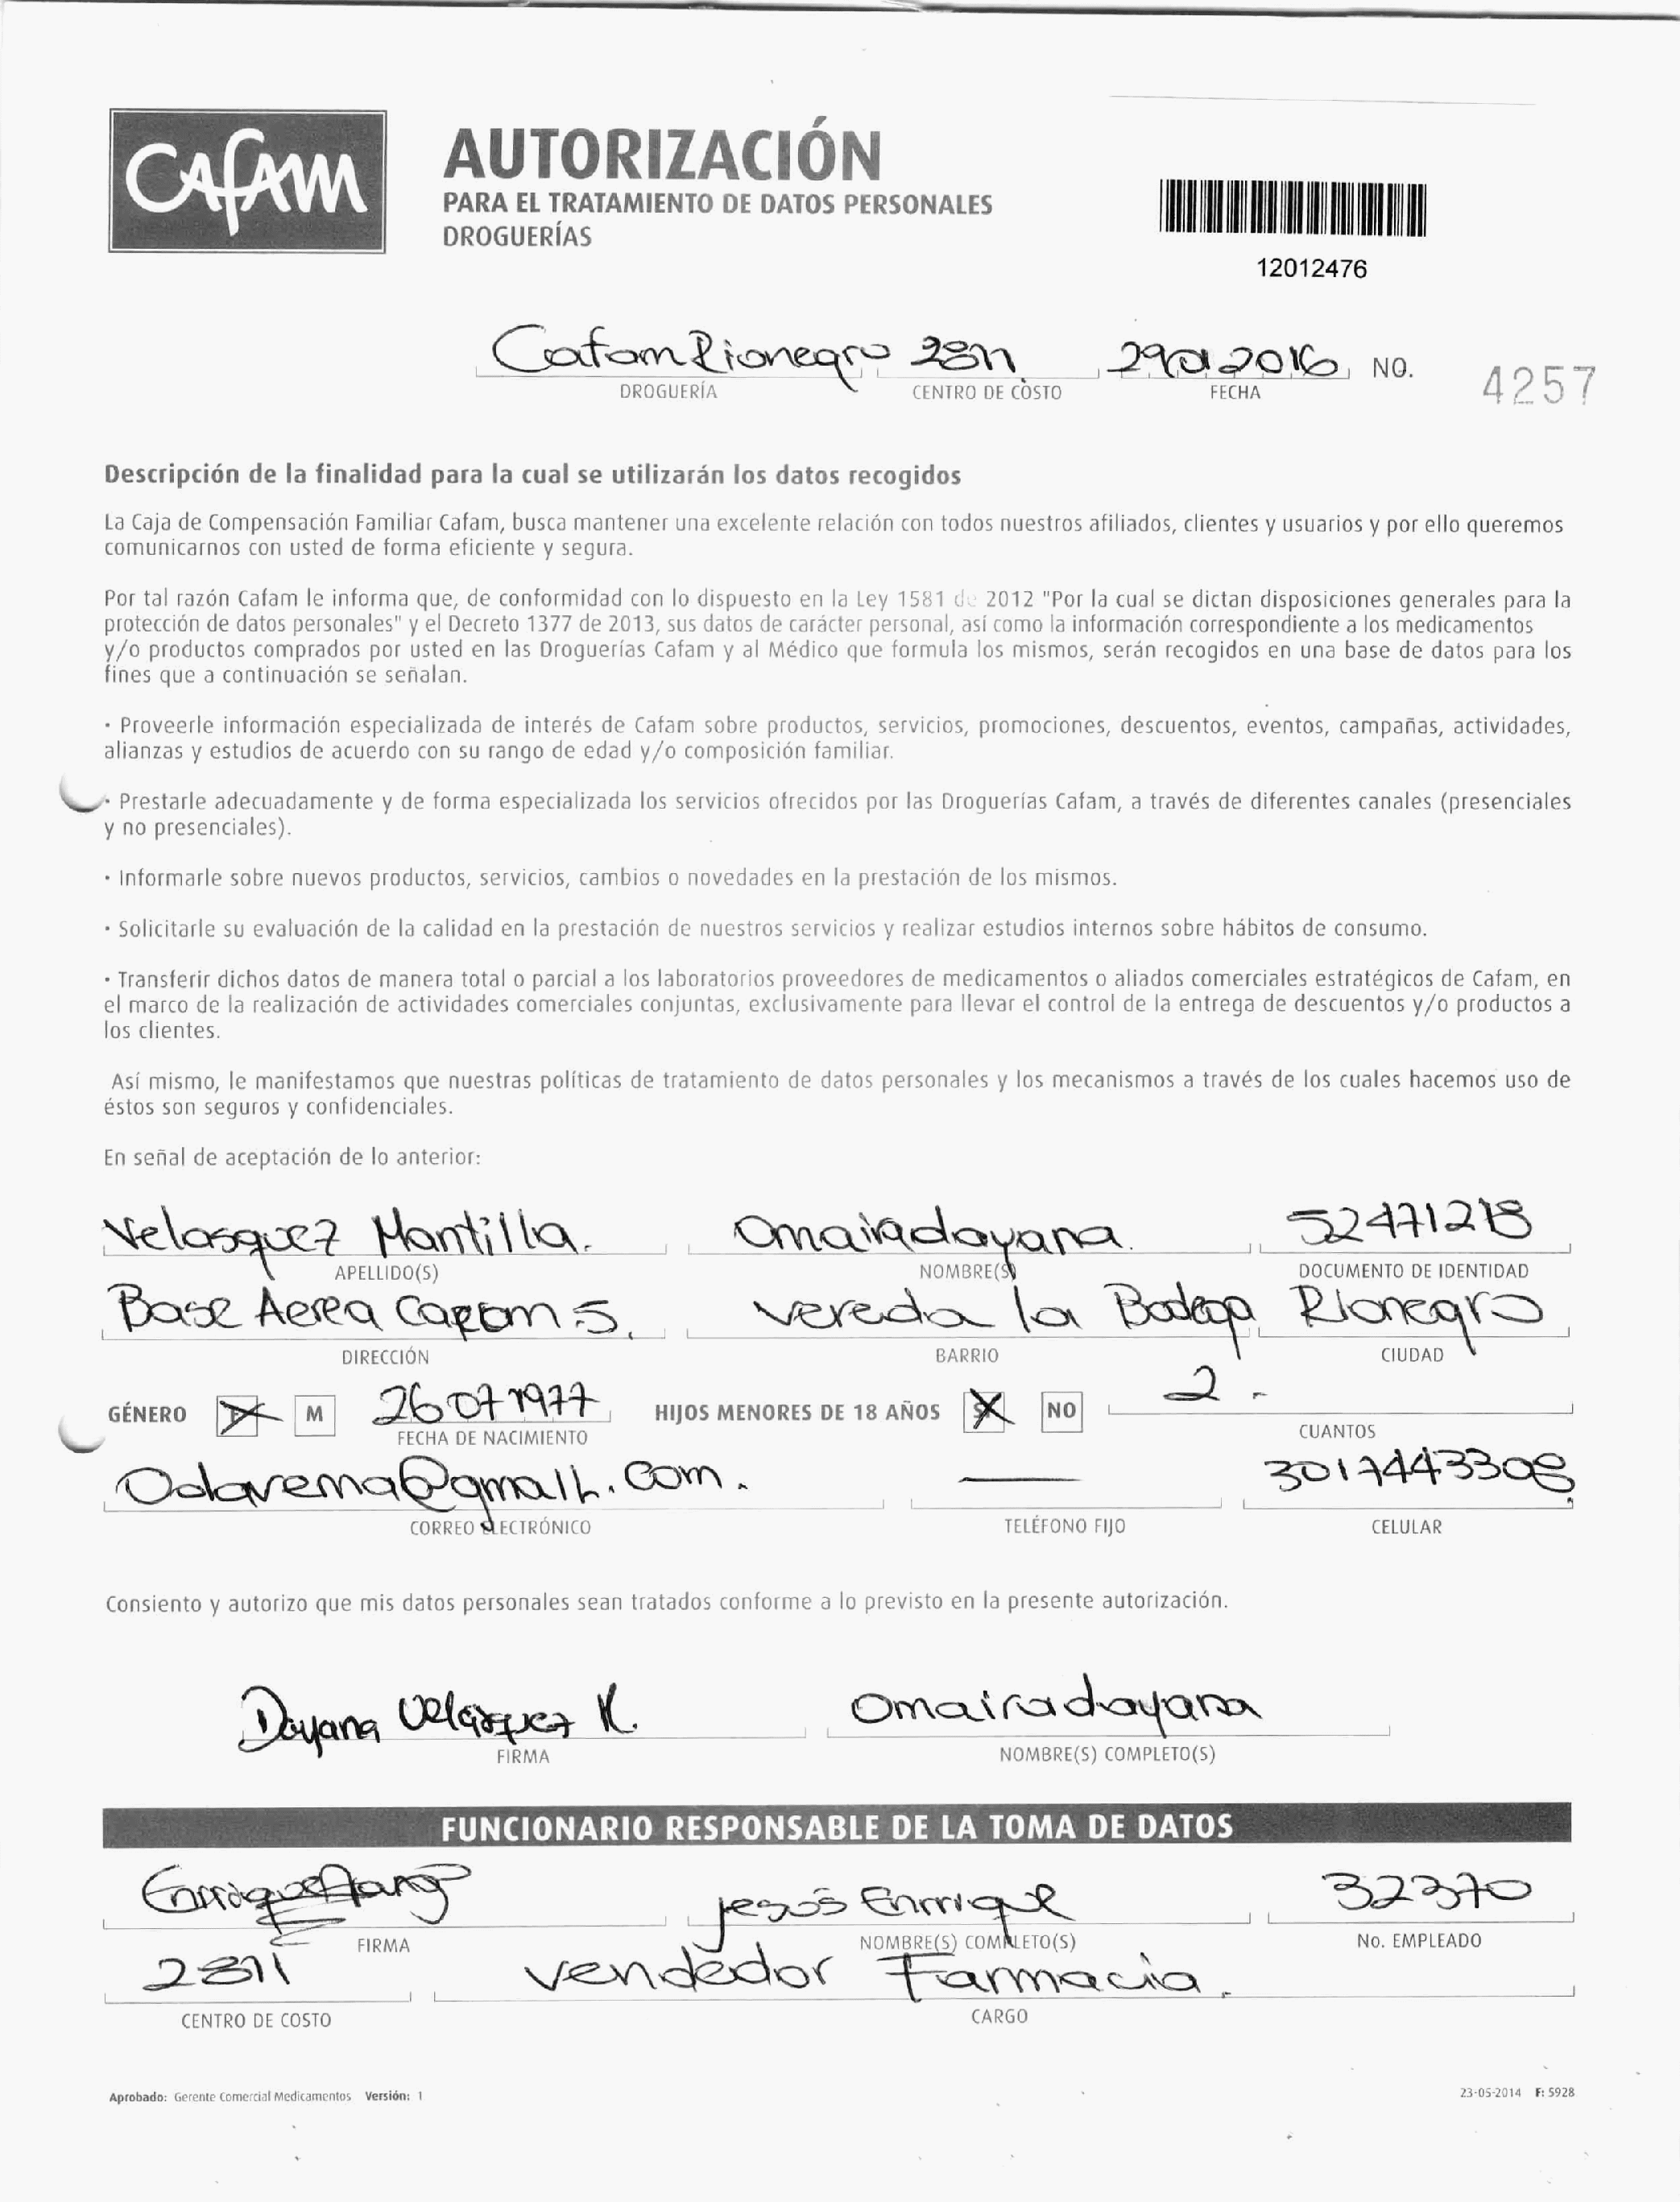 CAFAM
AUTORIZACIÓN
PARA EL TRATAMIENTO DE DATOS PERSONALES
DROGUERÍAS
12012476
Cafam Rionegro 2811 29012016 NO. 4257
DROGUERÍA CENTRO DE COSTO FECHA
Descripción de la finalidad para la cual se utilizarán los datos recogidos
La Caja de Compensación Familiar Cafam, busca mantener una excelente relación con todos nuestros afiliados, clientes y usuarios y por ello queremos
comunicarnos con usted de forma eficiente y segura.
Por tal razón Cafam le informa que, de conformidad con lo dispuesto en la Ley 1581 de 2012 "Por la cual se dictan disposiciones generales para la
protección de datos personales" y el Decreto 1377 de 2013, sus datos de carácter personal, así como la información correspondiente a los medicamentos
y/o productos comprados por usted en las Droguerías Cafam y al Médico que formula los mismos, serán recogidos en una base de datos para los
fines que a continuación se señalan.
· Proveerle información especializada de interés de Cafam sobre productos, servicios, promociones, descuentos, eventos, campañas, actividades,
alianzas y estudios de acuerdo con su rango de edad y/o composición familiar.
· Prestarle adecuadamente y de forma especializada los servicios ofrecidos por las Droguerías Cafam, a través de diferentes canales (presenciales
y no presenciales).
· Informarle sobre nuevos productos, servicios, cambios o novedades en la prestación de los mismos.
· Solicitarle su evaluación de la calidad en la prestación de nuestros servicios y realizar estudios internos sobre hábitos de consumo.
· Transferir dichos datos de manera total o parcial a los laboratorios proveedores de medicamentos o aliados comerciales estratégicos de Cafam, en
el marco de la realización de actividades comerciales conjuntas, exclusivamente para llevar el control de la entrega de descuentos y/o productos a
los clientes.
Así mismo, le manifestamos que nuestras políticas de tratamiento de datos personales y los mecanismos a través de los cuales hacemos uso de
éstos son seguros y confidenciales.
En señal de aceptación de lo anterior:
Velasquez Mantilla. Omairadayana.
APELLIDO(S) NOMBRE(S) DOCUMENTO DE IDENTIDAD
Base Aerea Cacom 5. vereda la Bodega Rionegro
DIRECCIÓN BARRIO CIUDAD
GÉNERO F M 26071977 HIJOS MENORES DE 18 AÑOS SI NO 2.
FECHA DE NACIMIENTO CUANTOS
3017443308
CORREO ELECTRÓNICO TELÉFONO FIJO CELULAR
Consiento y autorizo que mis datos personales sean tratados conforme a lo previsto en la presente autorización.
Dayana Velasquez M. Omairadayana
FIRMA NOMBRE(S) COMPLETO(S)
FUNCIONARIO RESPONSABLE DE LA TOMA DE DATOS
Jesús Enrrique 32370
FIRMA NOMBRE(S) COMPLETO(S) No. EMPLEADO
2811 vendedor Farmacia.
CENTRO DE COSTO CARGO
Aprobado: Gerente Comercial Medicamentos Versión: 1 23-05-2014 F: 5928